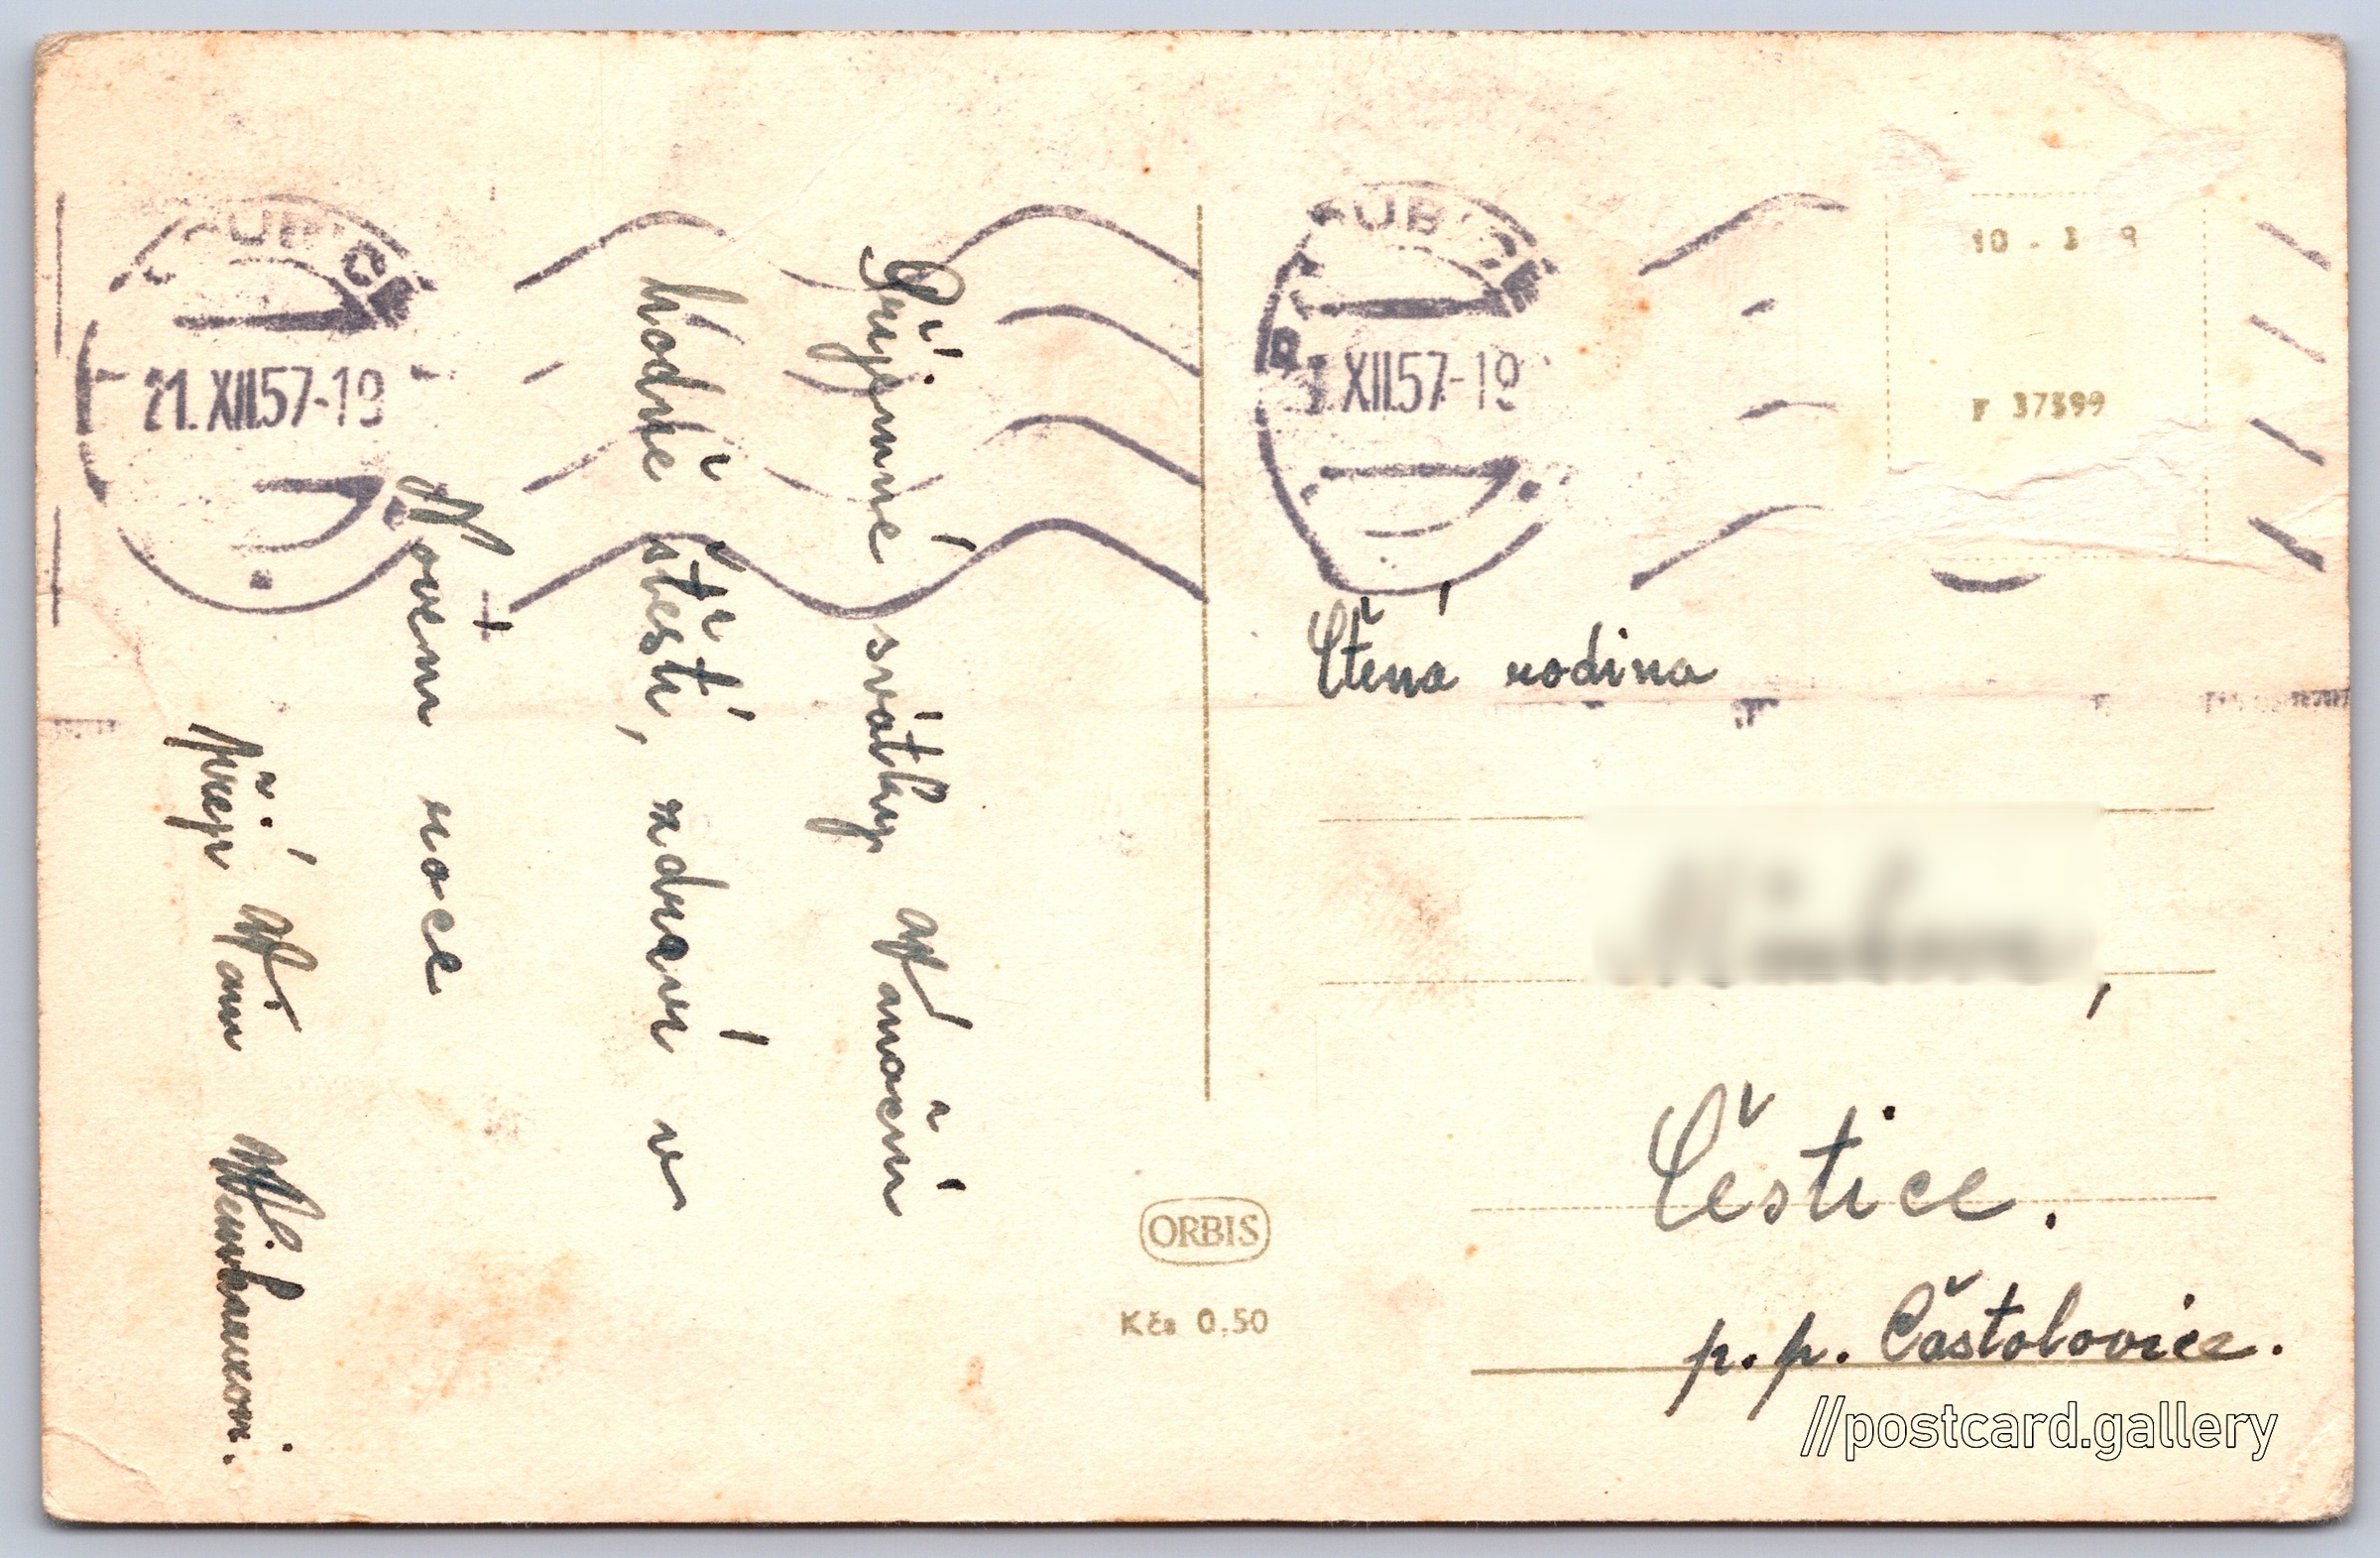 Příjemné svátky Vánoční
hodně štěstí, zdraví v
Novém roce
přejí Vám
21.XII.57-19
XII.57-19
10 . 3 9
F 37599
Ctěná rodina
Čéstice.
p.p. Častolovice.
ORBIS
Kčs 0.50
//postcard.gallery